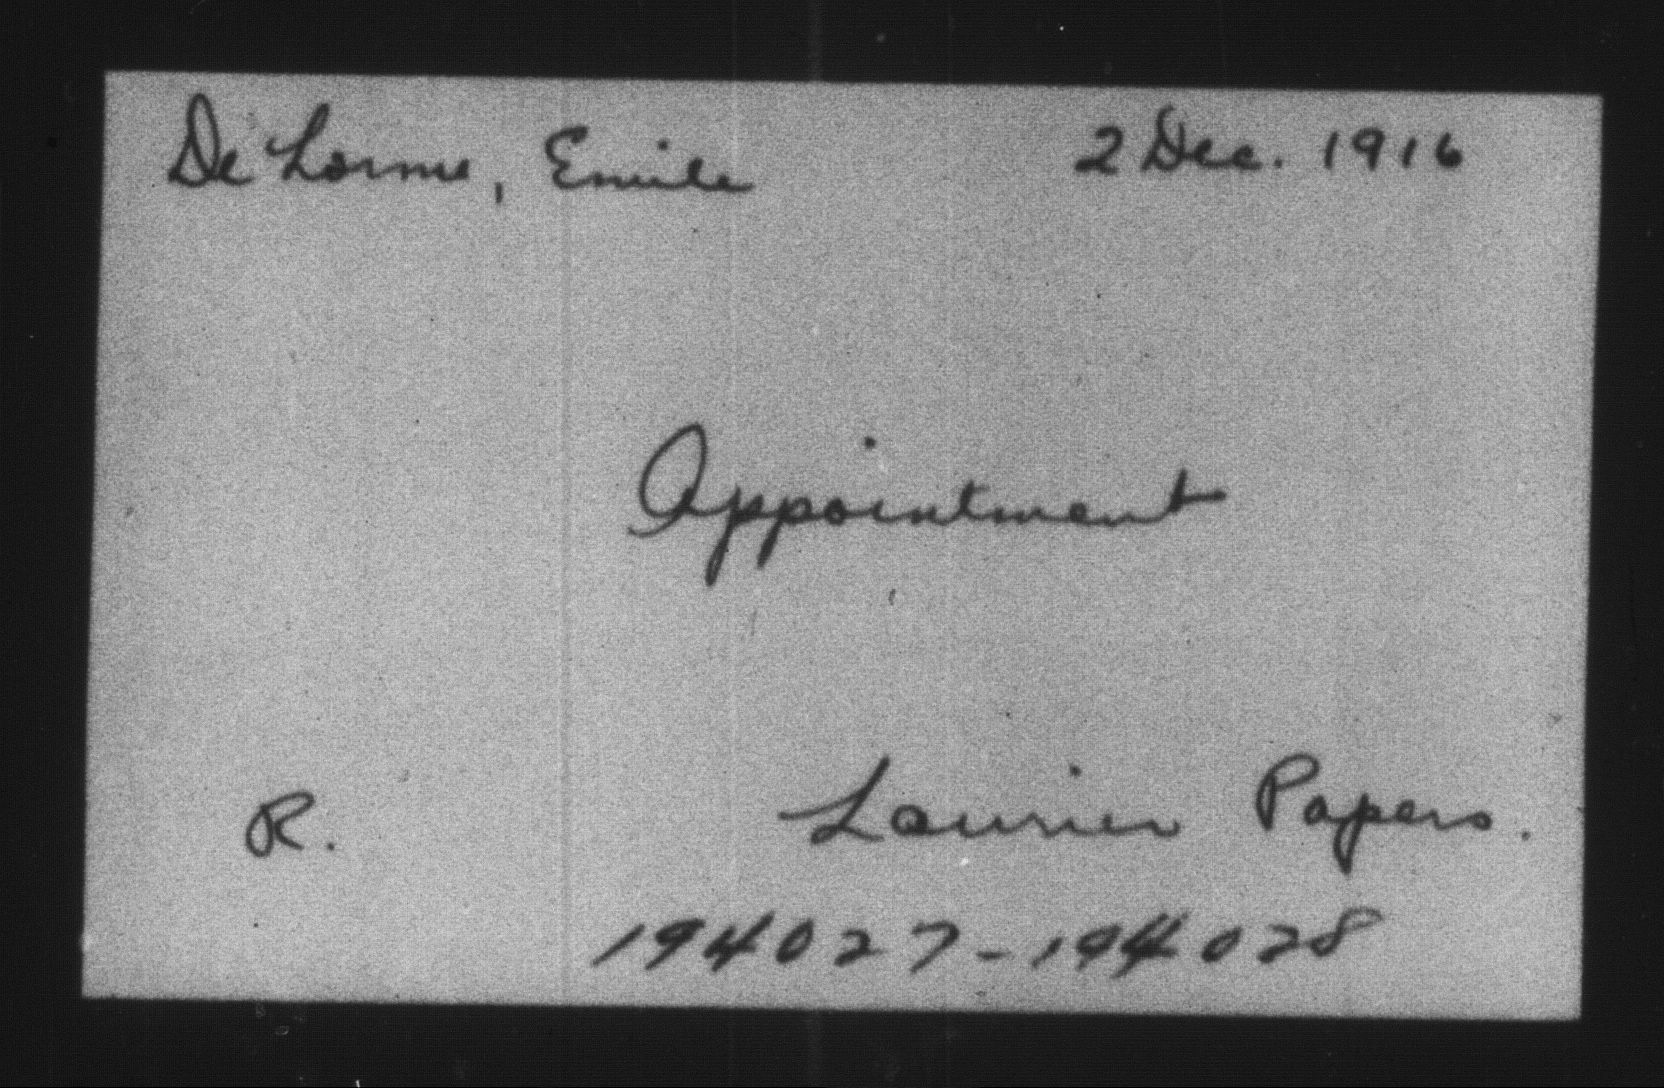 De Lorme, Emile 2 Dec. 1916
Appointment
R. Laurier Papers.
194027-194028